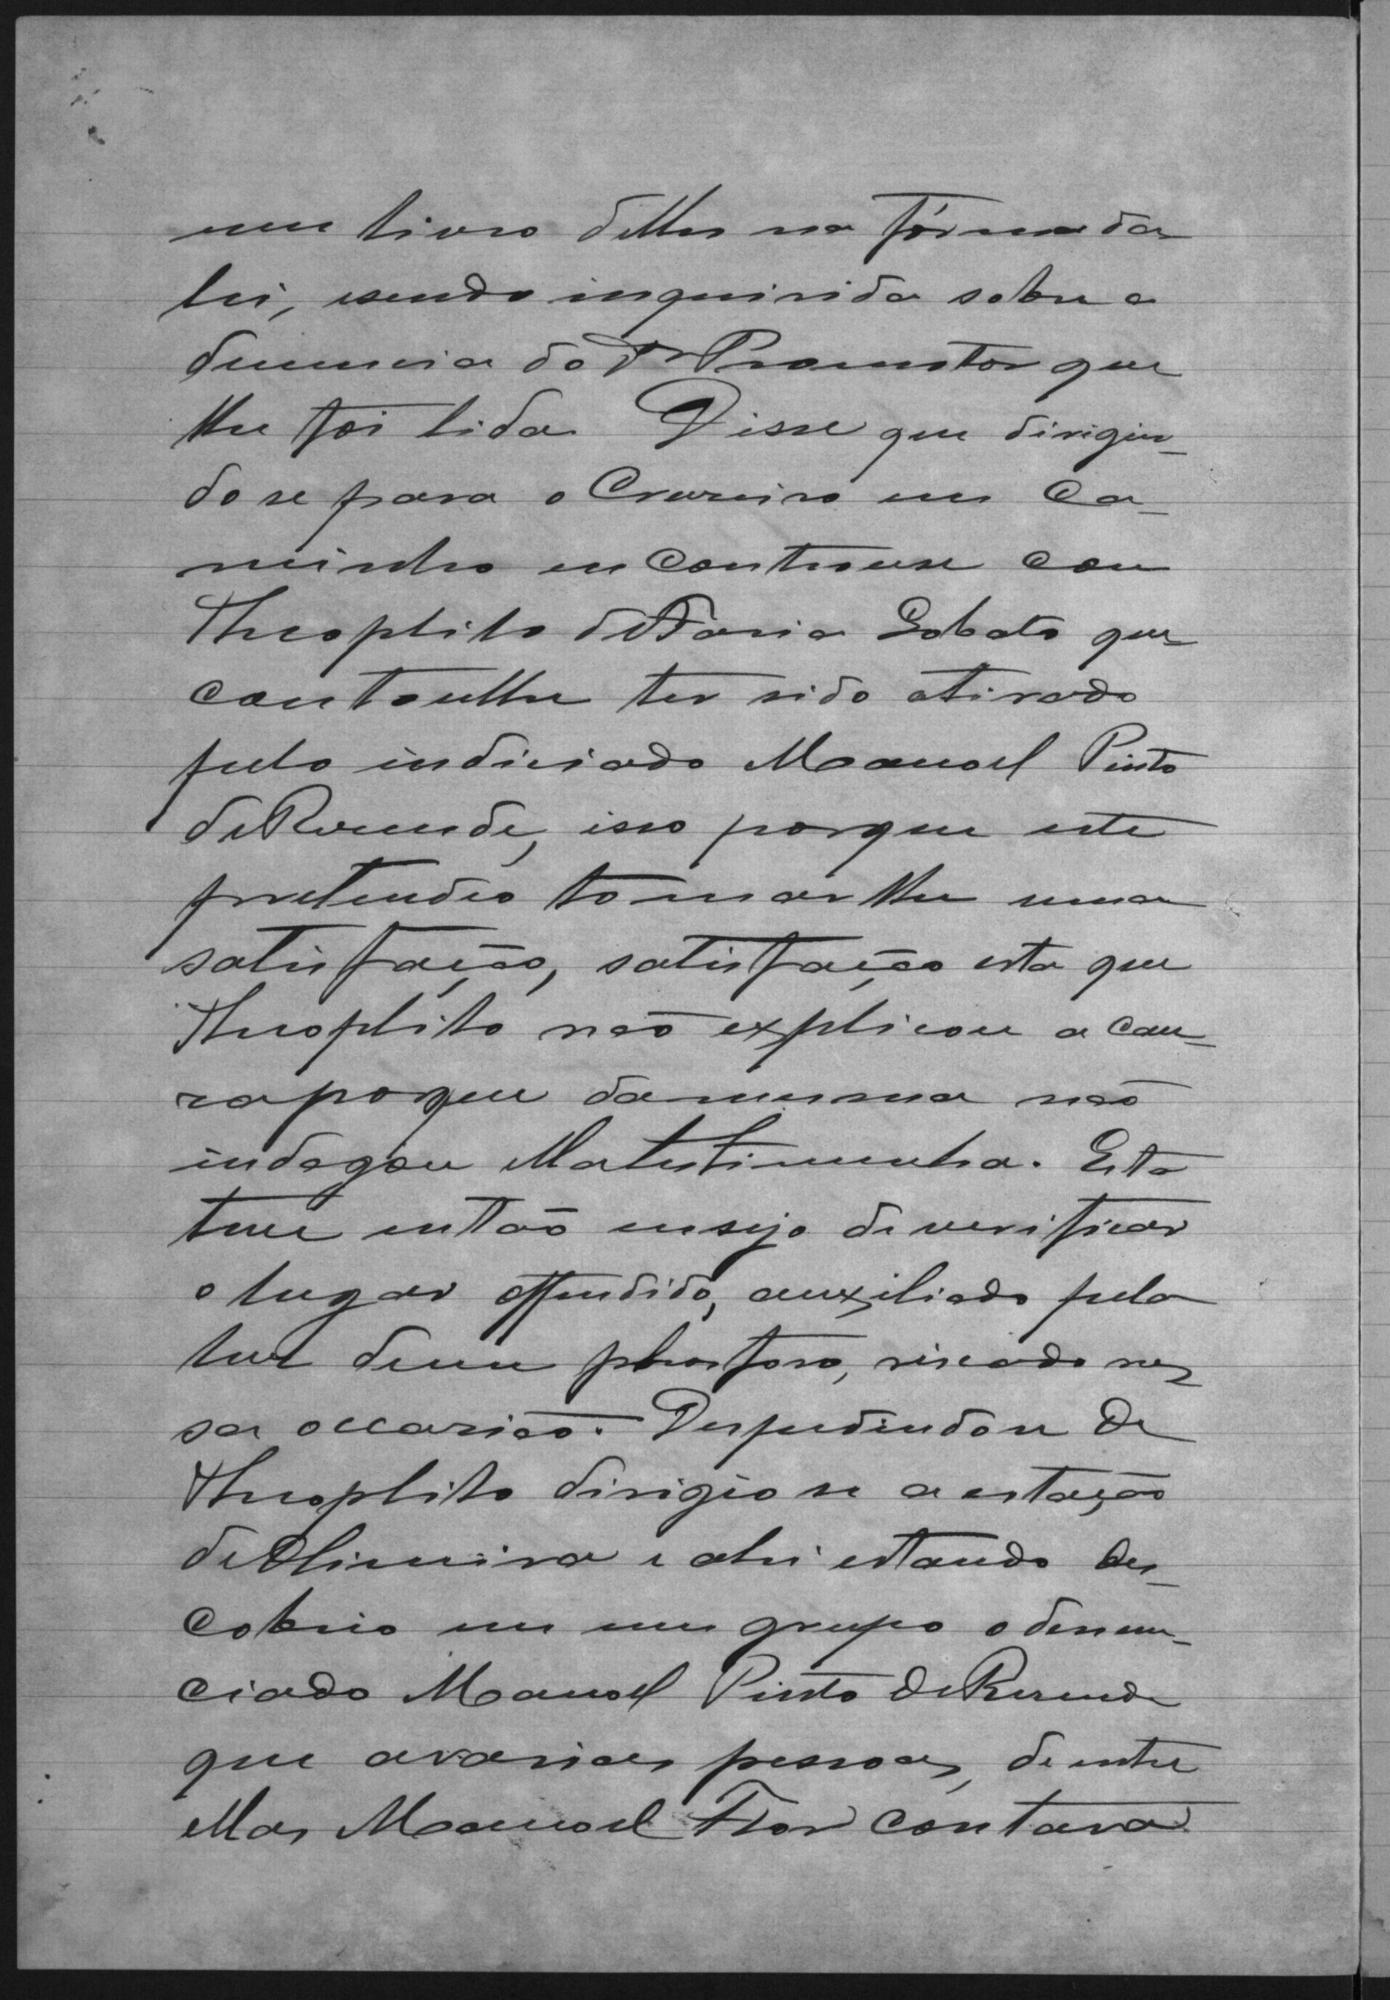 um livro delles na fórma da
lei, esendo inquirida sobre a
denuncia do Dr Promotor que
lhe foi lida Disse que dirigin-
do se para o Cruzeiro em Ca-
minho encontrouse com
Theophilo deFaria Lobato que
contoulhe ter sido atirado
pelo indiciado Manoel Pinto
deRezende, isso porque este
pretendeo tomar lhe uma
satisfação, satisfação esta que
Theophilo não explicou a cau-
sa poque damesma não
indagou ella testimunha. Esta
teve então ensejo de verificar
o lugar offendido, auxiliado pela
luz deum phosforo, riscado nes
sa occasião. Despedindose de
Theophilo dirigio se a estação
de e ahi estando des-
cobrio em um grupo o denun-
ciado Manoel Pinto deResende
que avarias pessoas, dentre
ellas Manoel Flor contava